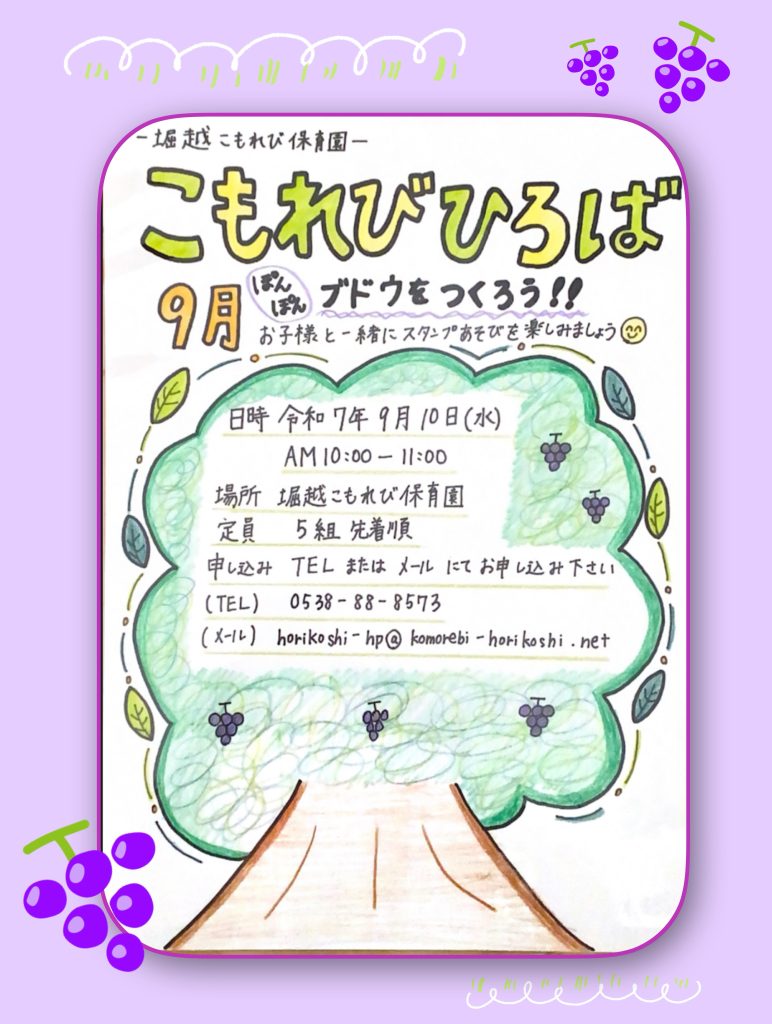 －堀越こもれび保育園－
こもれびひろば
9月 ぽんぽん ブドウをつくろう!!
お子様と一緒にスタンプあそびを楽しみましょう
日時 令和7年9月10日(水)
AM10:00－11:00
場所 堀越こもれび保育園
定員 5組 先着順
申し込み TEL または メール にてお申し込み下さい
(TEL) 0538-88-8573
(メール) horikoshi-hp@komorebi-horikoshi.net